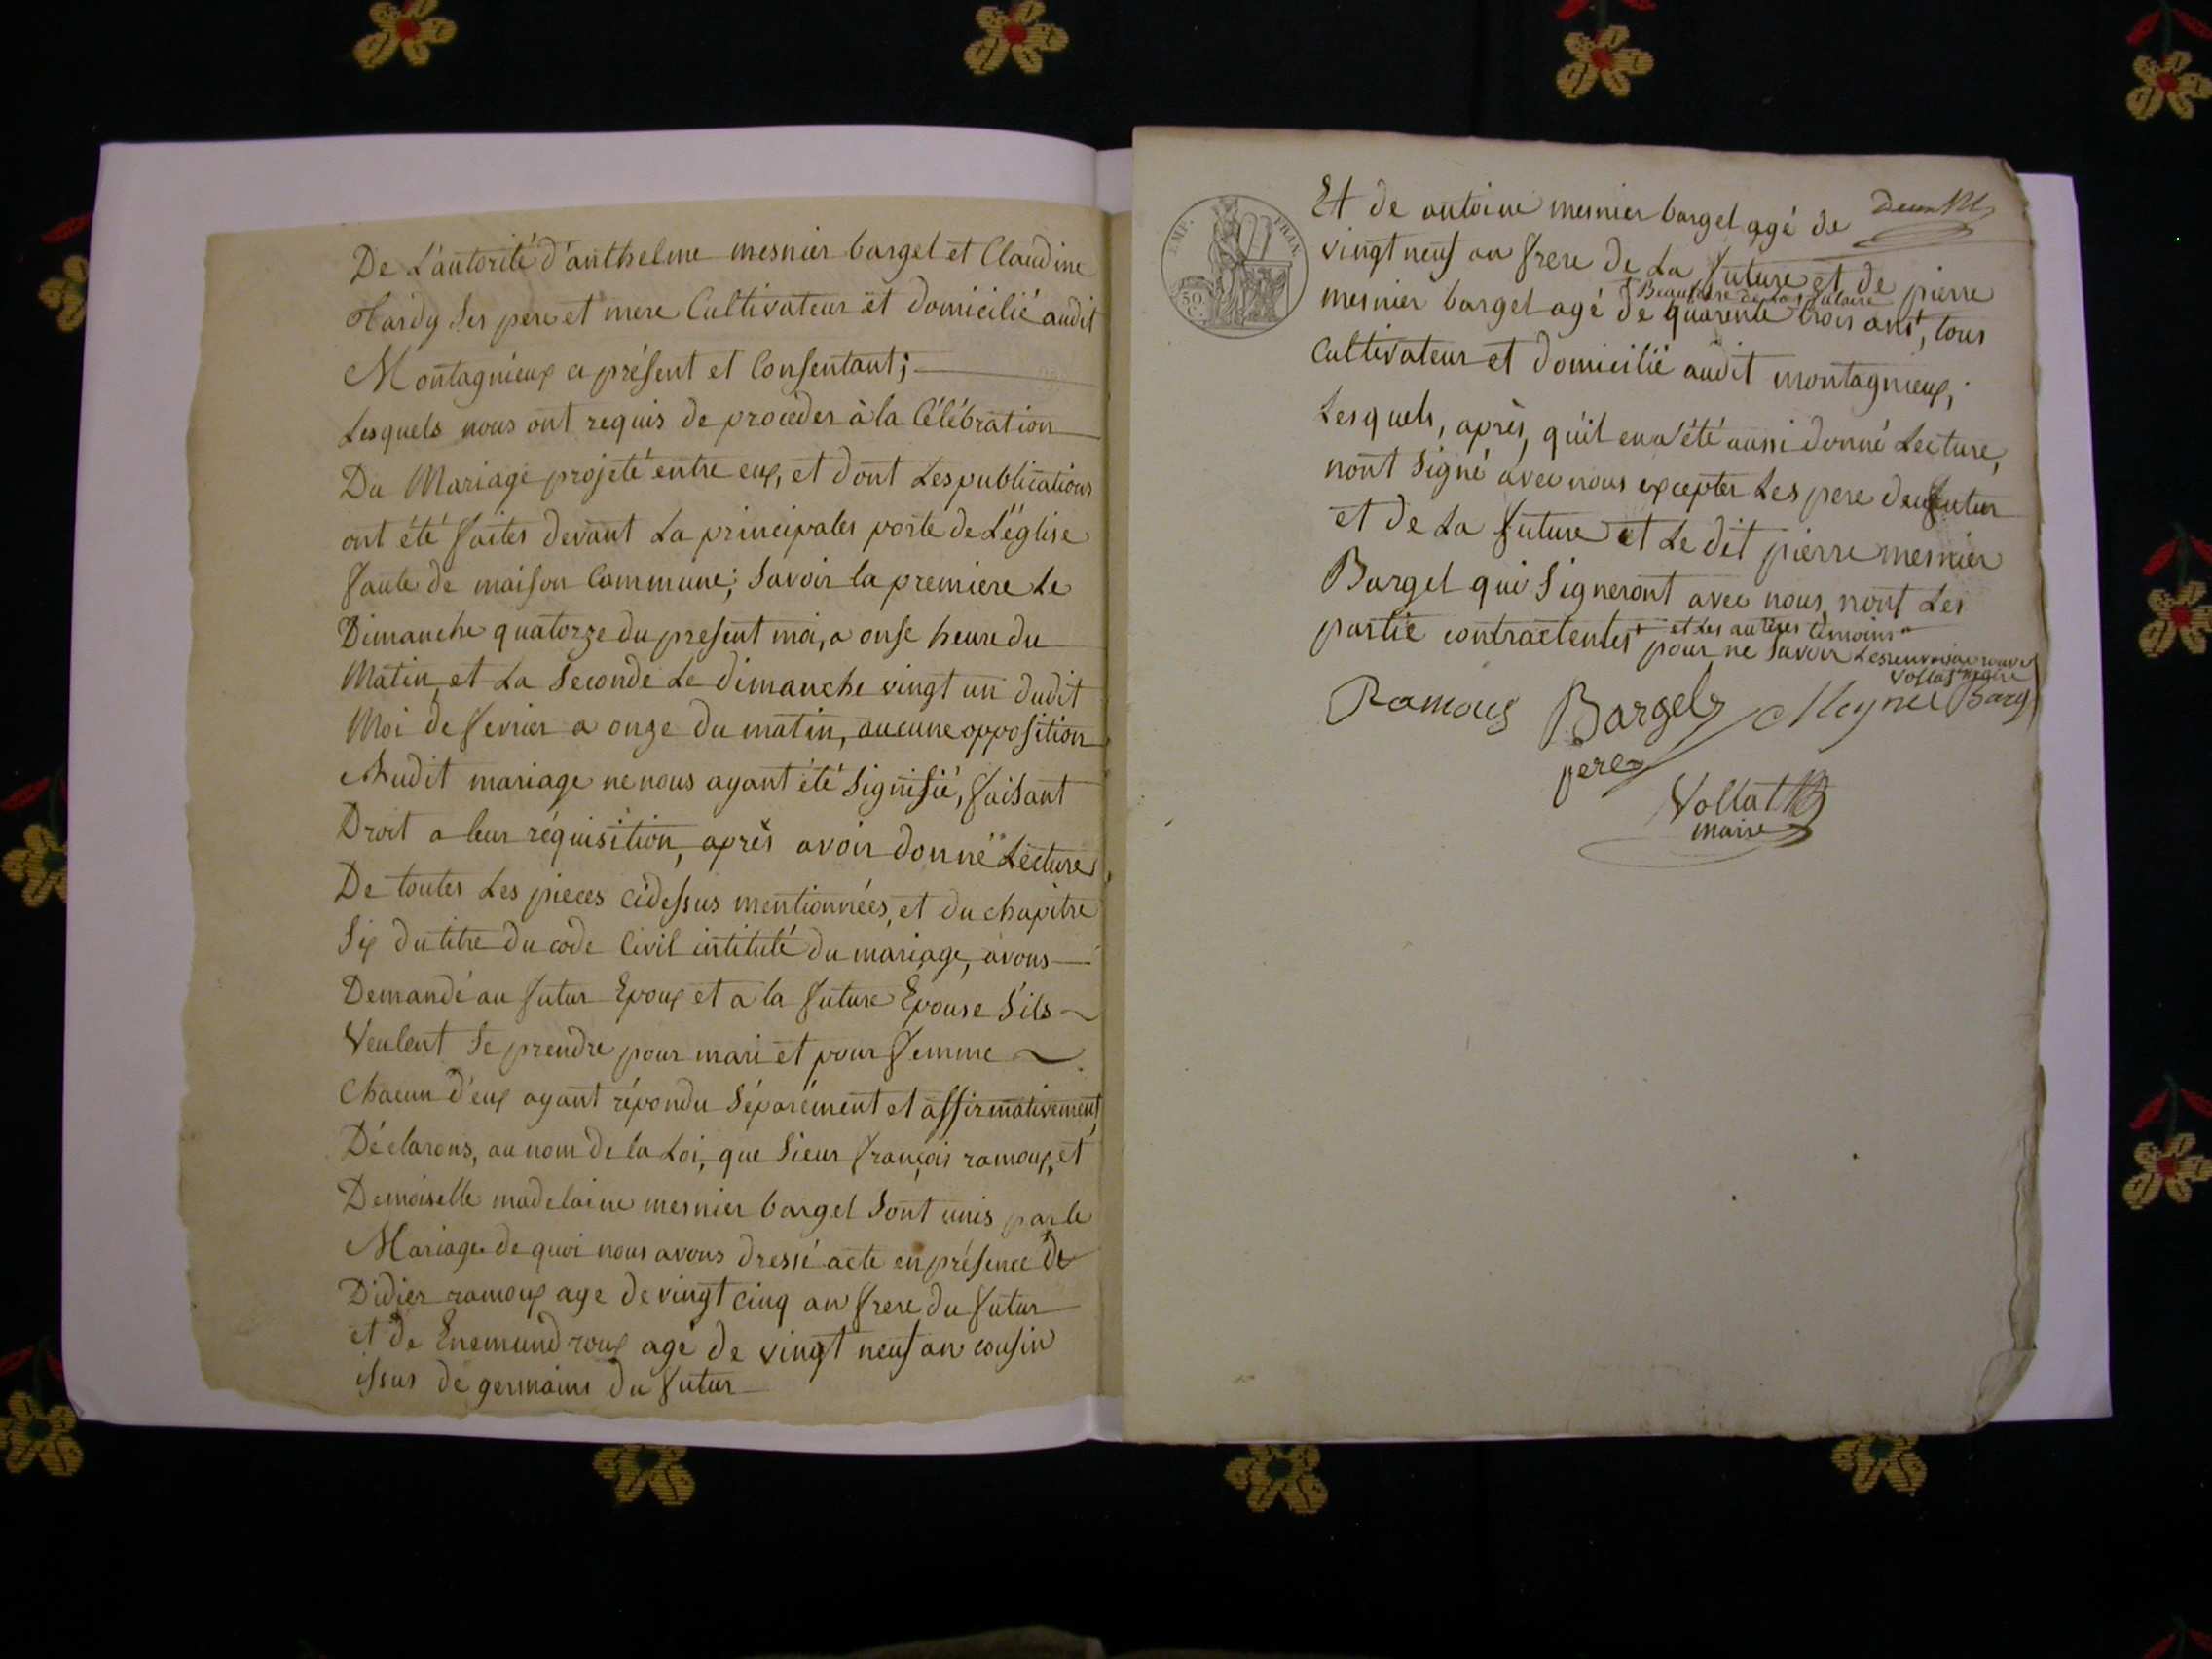 De L'autorité d'anthelme mesnier bargel et Claudine
Hardy Ses pere et mere Cultivateur et domicilié audit
Montagnieux ci présent et Consentant;
Lesquels nous ont requis de proceder à la Célébration
Du Mariage projeté entre eux, et dont Les publications
ont été faites devant La principales porte de L'église
faute de maison Commune; Savoir la premiere Le
Dimanche quatorze du present moi, a onse heure du
Matin, et La Seconde Le dimanche vingt un dudit
Moi de fevrier a onze du matin, aucune opposition
Audit mariage ne nous ayant été Signifié, faisant
Droit a leur réquisition, après avoir donné Lecture
De toutes Les pieces cidessus mentionnées, et du chapitre
Six du titre du code Civil intitulé du mariage, avons
Demandé au futur Epoux et a la future Epouse S'ils
Veulent Se prendre pour mari et pour femme
Chacun d'eux ayant répondu Séparément et affirmativement,
Déclarons, au nom de la Loi, que Sieur françois ramoux, et
Demoiselle madelaine mesnier bargel Sont unis par le
Mariage de quoi nous avons dressé acte en présence de
Didier ramoux age de vingt cinq an frere du futur
et de Enemund roux agé de vingt neuf an cousin
issus de germains du futur
IMP. FRAN.
50 C.
Et de antoine mesnier bargel agé de
vingt neuf an frere de La future et de pierre
Beaufrere de La future
mesnier bargel agé de quarente trois ans, tous
Cultivateur et domicilié audit montagnieux;
Lesquels, après, qu'il en a été aussi donné Lecture,
nont Signé avec nous excepter Les pere deu futur
et de La future et Le dit pierre mesnier
Bargel qui Signeront avec nous nont Les
partie contractentes et Les autres temoins
pour ne Savoir
Ramoux Bargel Meynie Barg
pere
Vollat
maire